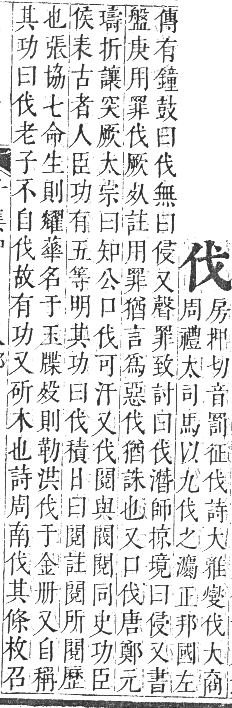 伐
房押切音罰征伐詩大雅燮伐大商
周禮太司馬以九伐之灋正邦國左
傳有鐘鼓曰伐無曰侵又聲罪致討曰伐潛師掠境曰侵又書
盤庚用罪伐厥死註用罪猶言爲惡伐猶誅也又口伐唐鄭元
璹折讓突厥太宗曰知公口伐可汗又伐閱與閥閱同史功臣
侯表古者人臣功有五等明其功曰伐積日曰閱註閱所閱歷
也張協七命生則耀華名于玉牒歿則勒洪伐于金册又自稱
其功曰伐老子不自伐故有功又斫木也詩周南伐其條枚召